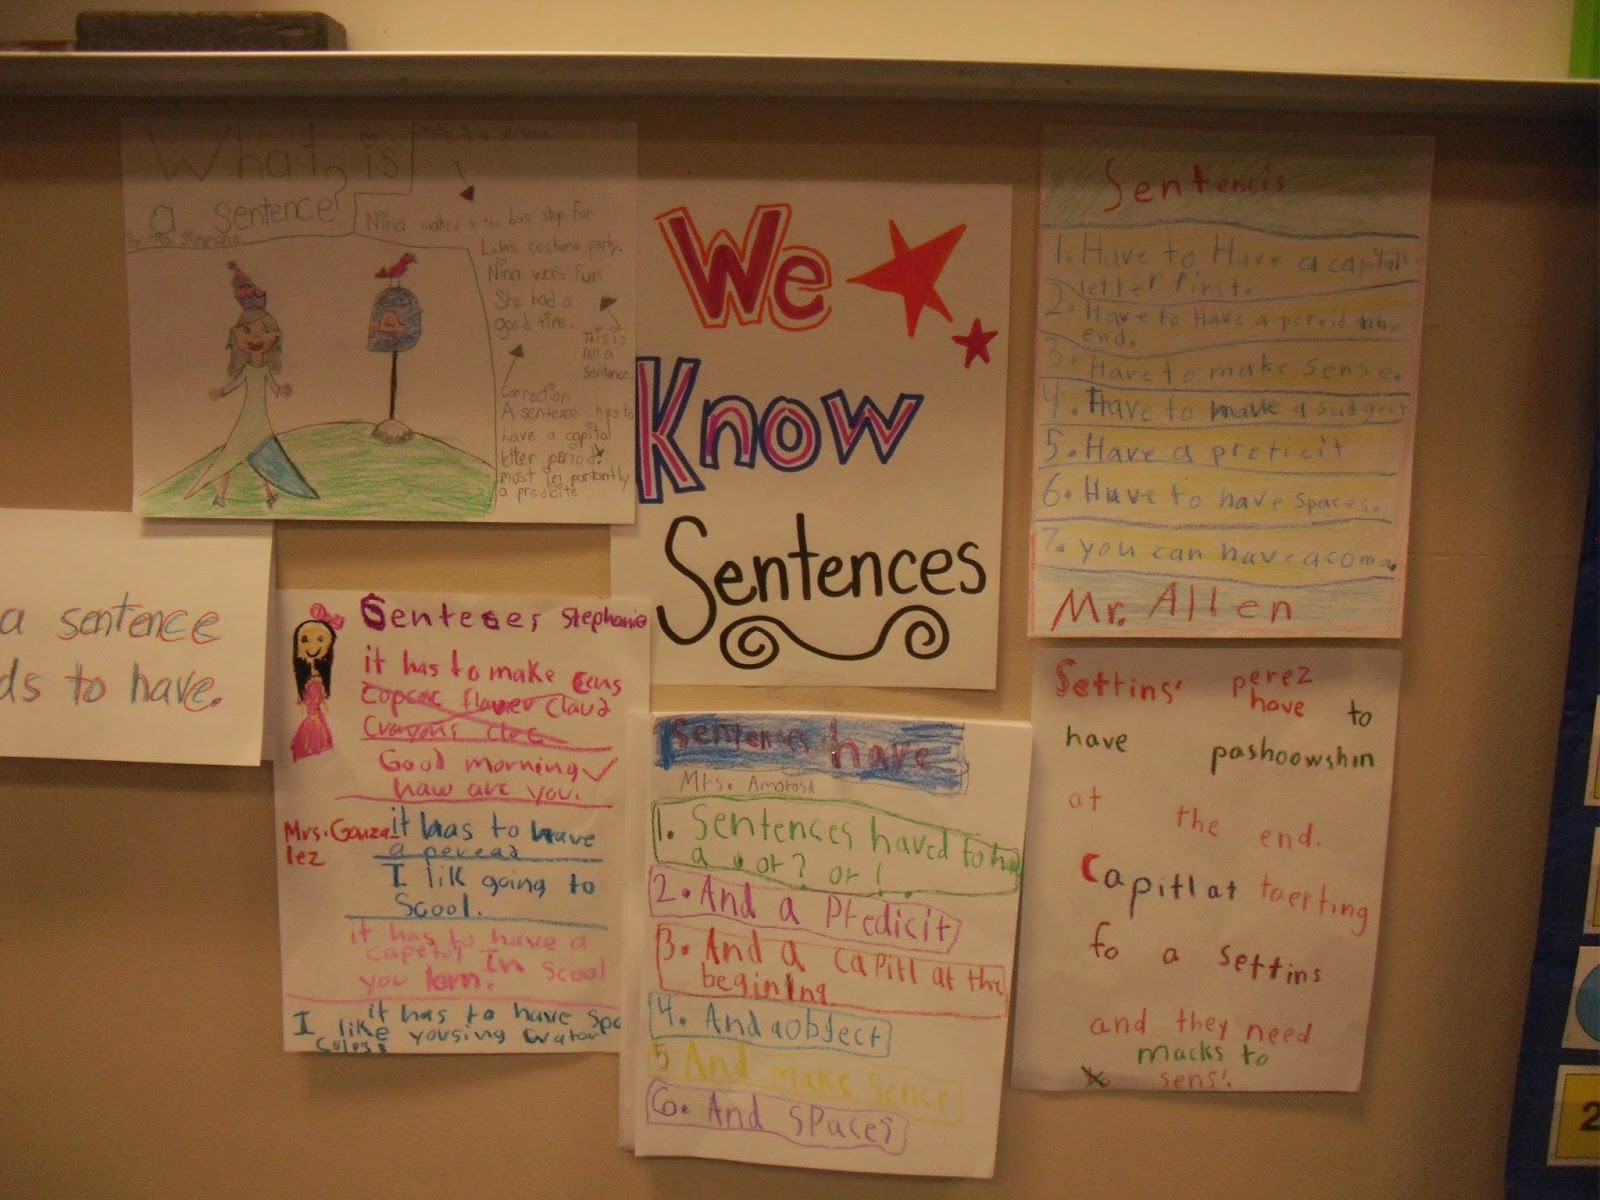 What is
a sentence?
This is a sentence
Nina walked to the bus stop for
Lola's costume party.
Nina was fun
She had a
good time.
This is
not a
sentence.
Connection
A sentence has to
have a capital
letter period
most in portantly
a predicite
We
Know
Sentences
Sentencis
1. Have to Have a capitall
letter first.
2. Have to Have a pereid
end.
3. Have to make sense.
4. Have to make a subject
5. Have a preticit
6. Have to have spaces.
7. you can have a coma.
Mr. Allen
a sentence
ds to have.
Senteses Stephanie
it has to make cens
Copcac flawer Claud
Crayons cloc
Good morning
haw are you.
Mrs. Gonza
lez
it has to have
a peread
I lik going to
Scool.
it has to have a
capetol In scool
you lern.
it has to have spa
I like yousing wator
Colers
Sentences have
Mrs. Amorosa
1. Sentences haved to ha
a . or ? or !.
2. And a Predicit
3. And a capitl at the
begining
4. And a obgect
5 And make sence
6. And spaces
Settins' perez
have to
have pashoowshin
at the end.
Capitlat taerting
fo a settins
and they need
macks to
sens'.
2